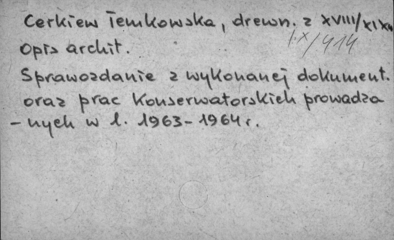 Cerkiew łemkowska, drewn. z XVIII/XIX w.
I.X/414
Opis archit.
Sprawozdanie z wykonanej dokument.
oraz prac konserwatorskich prowadza
-nych w l. 1963-1964 r.